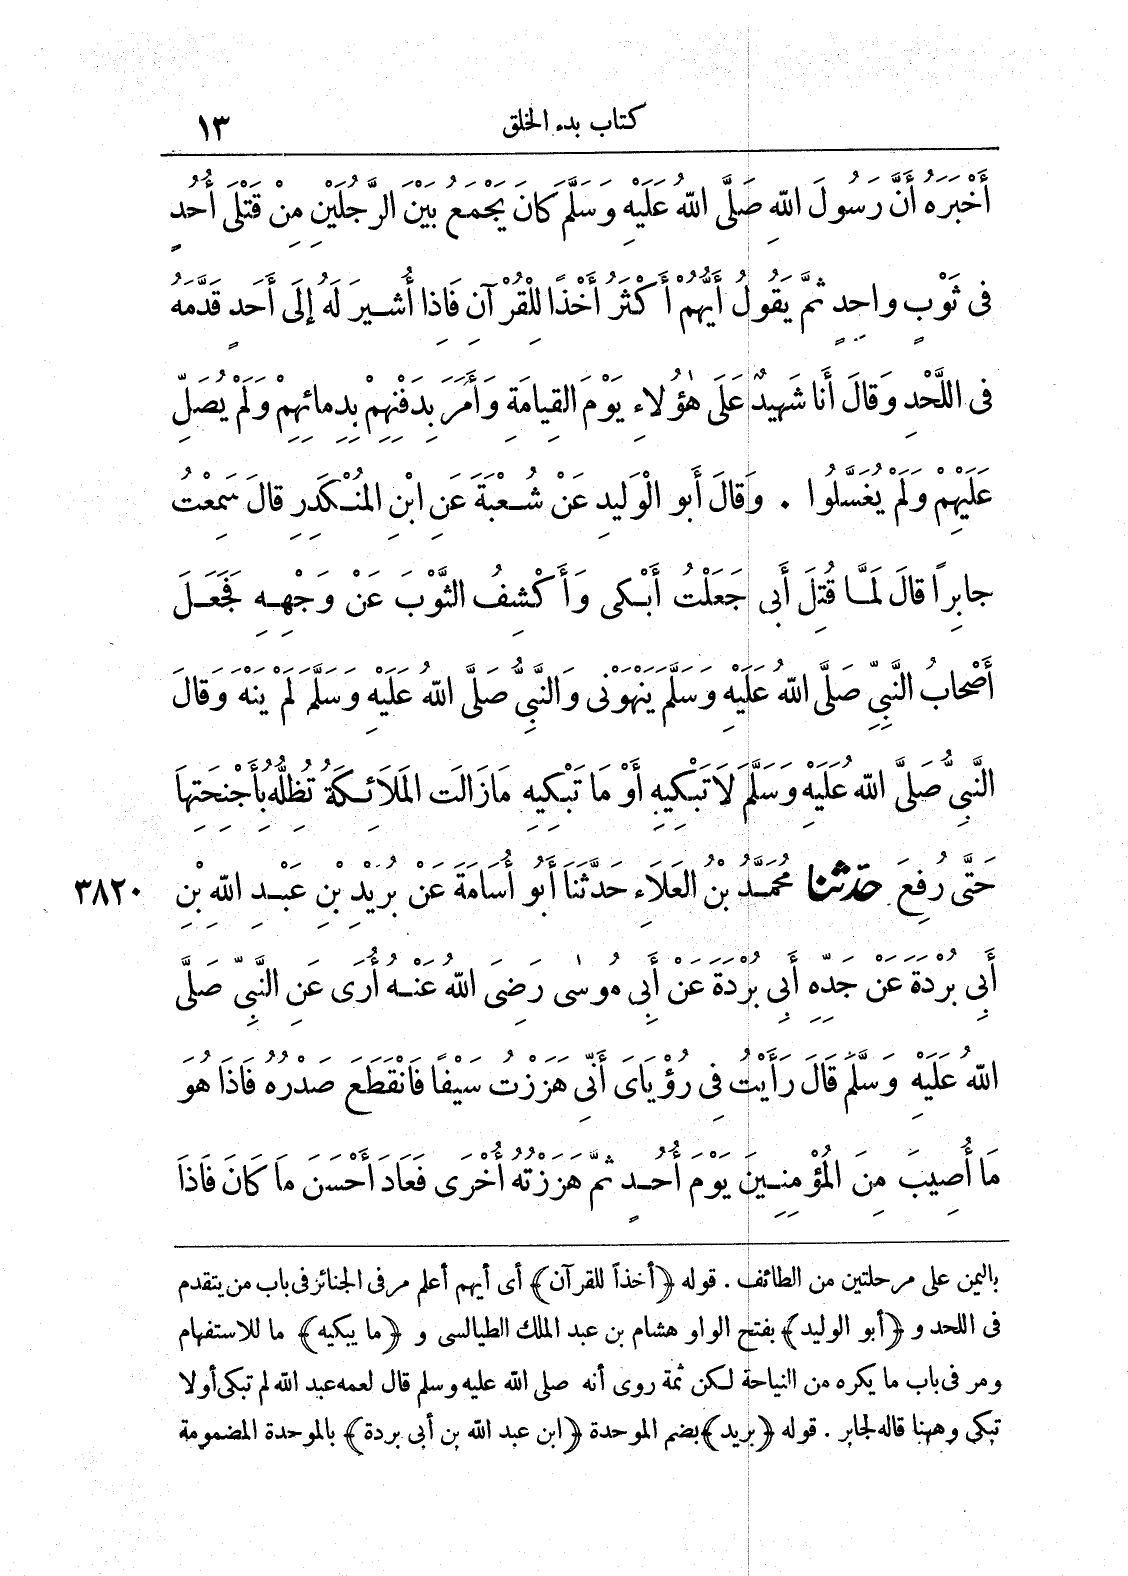 كتاب بدء الخلق ١٣
أَخْبَرَهُ أَنَّ رَسُولَ اللّهِ صَلَّى اللّهُ عَلَيْهِ وَسَلَّمَ كانَ يَجْمَعُ بَيْنَ الرَّجُلَيْنِ مِنْ قَتْلَى أُحُدٍ
فى ثَوْبٍ واحِدٍ ثُمَّ يَقُولُ أَيُّهُمْ أَكْثَرُ أَخْذًا لِلْقُرْآنِ فَاِذا أُشِيرَ لَهُ إِلَى أَحَدٍ قَدَّمَهُ
فى اللَّحْدِ وَقالَ أَنا شَهِيدٌ عَلَى هٰؤُلاءِ يَوْمَ القِيامَةِ وَأَمَرَ بِدَفْنِهِمْ بِدِمائِهِمْ وَلَمْ يُصَلِّ
عَلَيْهِمْ وَلَمْ يُغَسَّلُوا . وَقالَ أَبو الْوَلِيدِ عَنْ شُعْبَةَ عَنِ ابْنِ المُنْكَدِرِ قالَ سَمِعْتُ
جابِراً قالَ لَمَّا قُتِلَ أَبى جَعَلْتُ أَبْكى وَأَكْشِفُ الثَّوْبَ عَنْ وَجْهِهِ فَجَعَلَ
أَصْحابُ النَّبِيِّ صَلَّى اللّهُ عَلَيْهِ وَسَلَّمَ يَنْهَوْنى وَالنَّبِىُّ صَلَّى اللّهُ عَلَيْهِ وَسَلَّمَ لَمْ يَنْهَ وَقالَ
النَّبِىُّ صَلَّى اللّهُ عَلَيْهِ وَسَلَّمَ لَا تَبْكِيهِ أَوْ مَا تَبْكِيهِ مَازَالَت المَلَائِكَةُ تُظِلُّهُ بأَجْنِحَتِهَا
حَتَّى رُفِعَ حدّثنا مُحَمَّدُ بْنُ العَلَاءِ حَدَّثَنَا أَبُو أُسَامَةَ عَنْ بُرَيْدِ بْنِ عَبْدِ اللّهِ بْنِ ٣٨٢٠
أَبِى بُرْدَةَ عَنْ جَدِّهِ أَبِى بُرْدَةَ عَنْ أَبِى مُوسٰى رَضِىَ اللّهُ عَنْهُ أُرَى عَنِ النَّبِىِّ صَلَّى
اللّهُ عَلَيْهِ وَسَلَّمَ قَالَ رَأَيْتُ فِى رُؤْيَاىَ أَنِّى هَزَزْتُ سَيْفًا فَانْقَطَعَ صَدْرُهُ فَاذَا هُوَ
مَا أُصِيبَ مِنَ المُؤْمِنِينَ يَوْمَ أُحُدٍ ثُمَّ هَزَزْتُهُ أُخْرَى فَعَادَ أَحْسَنَ مَا كَانَ فَاذَا
باليمن على مرحلتين من الطائف . قوله ﴿أخذاً للقرآن﴾ أى أيهم أعلم مر فى الجنائز فى باب من يتقدم
فى اللحد و ﴿أبو الوليد﴾ بفتح الواو هشام بن عبد الملك الطيالسى و ﴿ما يبكيه﴾ ما للاستفهام
ومر فى باب ما يكره من النياحة لكن ثمة روى أنه صلى الله عليه وسلم قال لعمه عبد الله لم تبكى أو لا
تبكى وههنا قاله لجابر . قوله ﴿بريد﴾ بضم الموحدة ﴿ابن عبد الله بن أبى بردة﴾ بالموحدة المضمومة